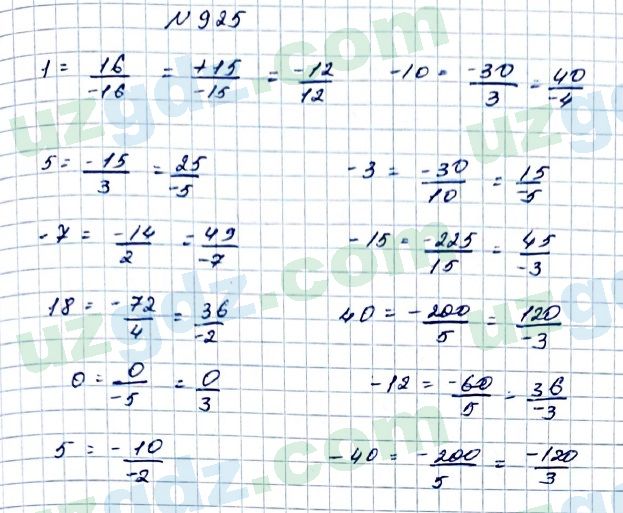 №925
1 = 16/-16 = +15/-15 = -12/12 -10 = -30/3 = 40/-4
5 = -15/3 = 25/-5 -3 = -30/10 = 15/-5
-7 = -14/2 = -49/-7 -15 = -225/15 = 45/-3
18 = -72/4 = 36/-2 40 = -200/5 = 120/-3
0 = 0/-5 = 0/3 -12 = -60/5 = 36/-3
5 = -10/-2 -40 = -200/5 = -120/3
uzgdz.com